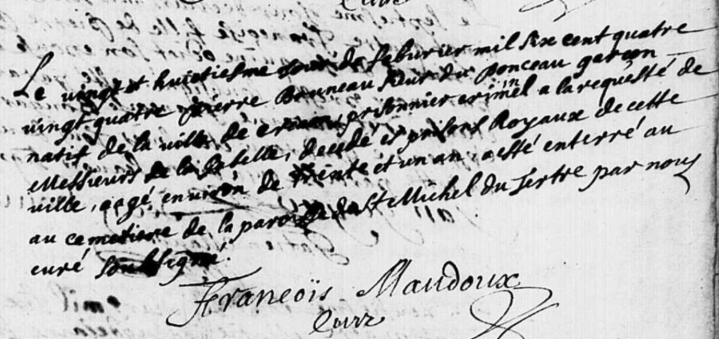 Curé
Le vingt et huictiesme jour de feburier mil six cent quatre
vingt quatre pierre Bruneau sieur du ponceau garçon
natif de la ville de prisonnier criminel a la requeste de
Messieurs de la gabelle, decedé es prisons Royaux de cette
ville, aagé environ de trente et un an, a esté enterré au
au cemetiere de la paroisse de St Michel du tertre par nous
curé soubsigné.
François Maudoux
Curé